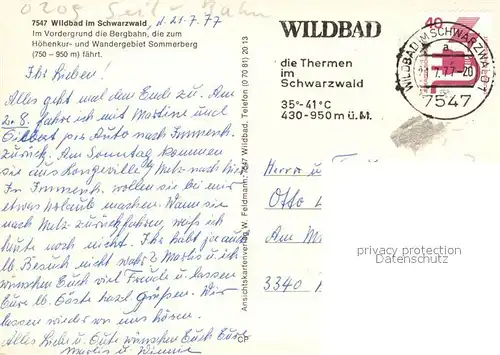 0209 Seil-Bahn
7547 Wildbad im Schwarzwald
d. 21.7.77
Im Vordergrund die Bergbahn, die zum
Höhenkur- und Wandergebiet Sommerberg
(750 - 950 m) fährt.
Ihr Lieben!
Alles geht mal dem Ende zu. Am
2.8. fahre ich mit Martine und
Gilbert per Auto nach
zurück. Am Sonntag kommen
sie aus Longeville Metz nach hier
In wollen sie bei mir
etwas Urlaub machen. Wann sie
nach Metz zurückfahren, weiß ich
heute noch nicht. Ihr habt ja auch
lb. Besuch nicht wahr? Marlis u. ich
wünschen Euch viel Freude u. lassen
Eure lb. Gäste herzl. grüßen. Wir
lassen wieder von uns hören.
Alles Liebe u. Gute wünschen Euch Eure
Marlis u.
Ansichtskartenverlag W. Feldmann, 7547 Wildbad, Telefon (0 70 81) 20 13
CP
WILDBAD
die Thermen
im
Schwarzwald
35°-41°C
430-950 m ü.M.
40
WILDBAD IM SCHWARZWALD
a
7.77-20
7547
Herrn u
Otto
Am
3340
privacy protection
Datenschutz